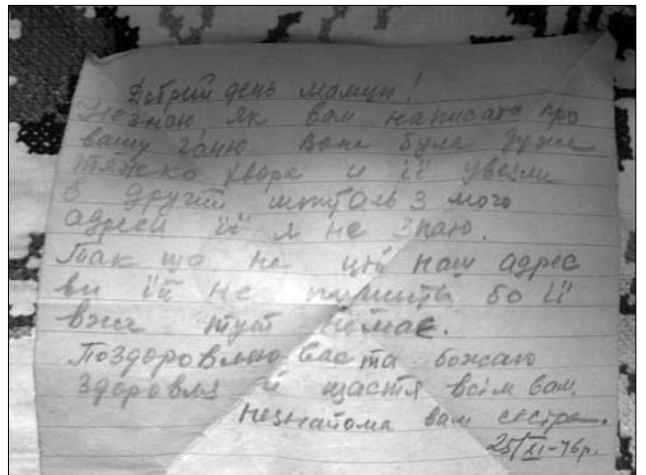 Добрий день мамцю!
Незнаю як вам написати про
вашу Ганю. Вона була дуже
тяжко хвора и її увезли
в другий шпіталь з мого
адреси її я не знаю.
Так що на цей наш адрес
ви їй не пишить бо її
вже тут немає.
Поздоровляю вас та божаю
здоровля й щастя всім вам.
незнайома вам сестра.
25/XI-76р.